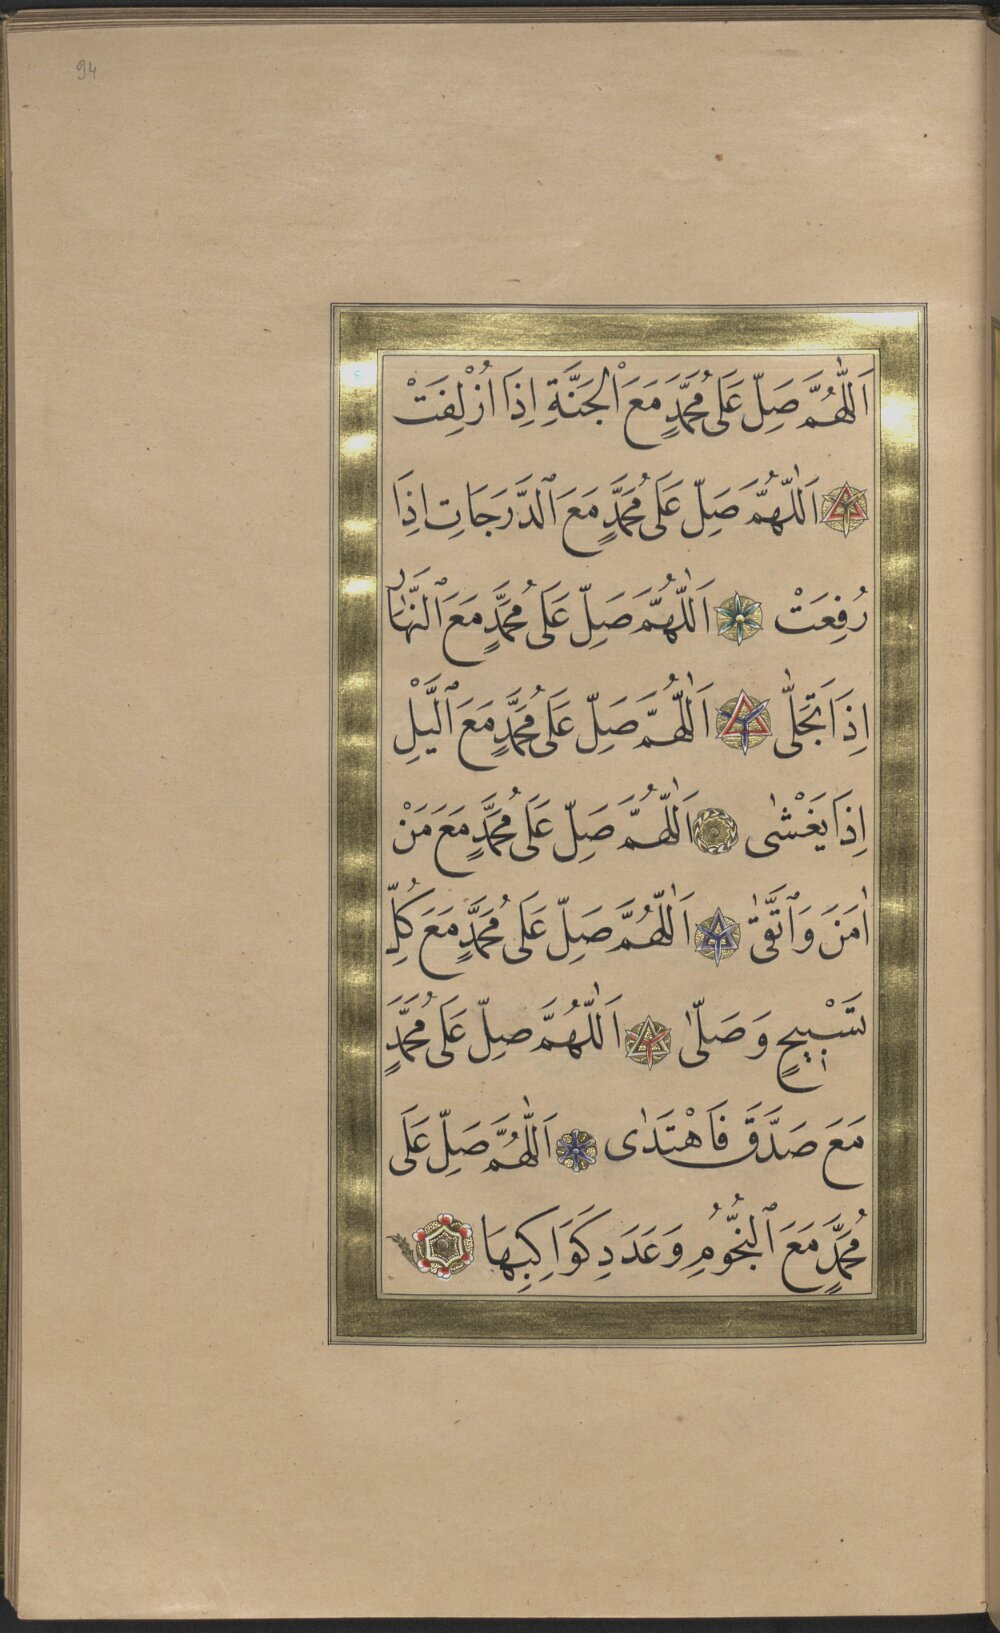 94
اَللّٰهُمَّ صَلِّ عَلٰى مُحَمَّدٍ مَعَ الْجَنَّةِ اِذَا اُزْلِفَتْ
اَللّٰهُمَّ صَلِّ عَلٰى مُحَمَّدٍ مَعَ ٱلدَّرَجَاتِ اِذَا
رُفِعَتْ اَللّٰهُمَّ صَلِّ عَلٰى مُحَمَّدٍ مَعَ ٱلنَّهَارِ
اِذَا تَجَلّٰى اَللّٰهُمَّ صَلِّ عَلٰى مُحَمَّدٍ مَعَ ٱلَّيْلِ
اِذَا يَغْشٰى اَللّٰهُمَّ صَلِّ عَلٰى مُحَمَّدٍ مَعَ مَنْ
اٰمَنَ وَٱتَّقٰى اَللّٰهُمَّ صَلِّ عَلٰى مُحَمَّدٍ مَعَ كُلِّ
تَسْبِيحٍ وَصَلّٰى اَللّٰهُمَّ صَلِّ عَلٰى مُحَمَّدٍ
مَعَ صَدَّقَ فَاهْتَدٰى اَللّٰهُمَّ صَلِّ عَلٰى
مُحَمَّدٍ مَعَ ٱلنُّجُومِ وَعَدَدِ كَوَاكِبِهَا